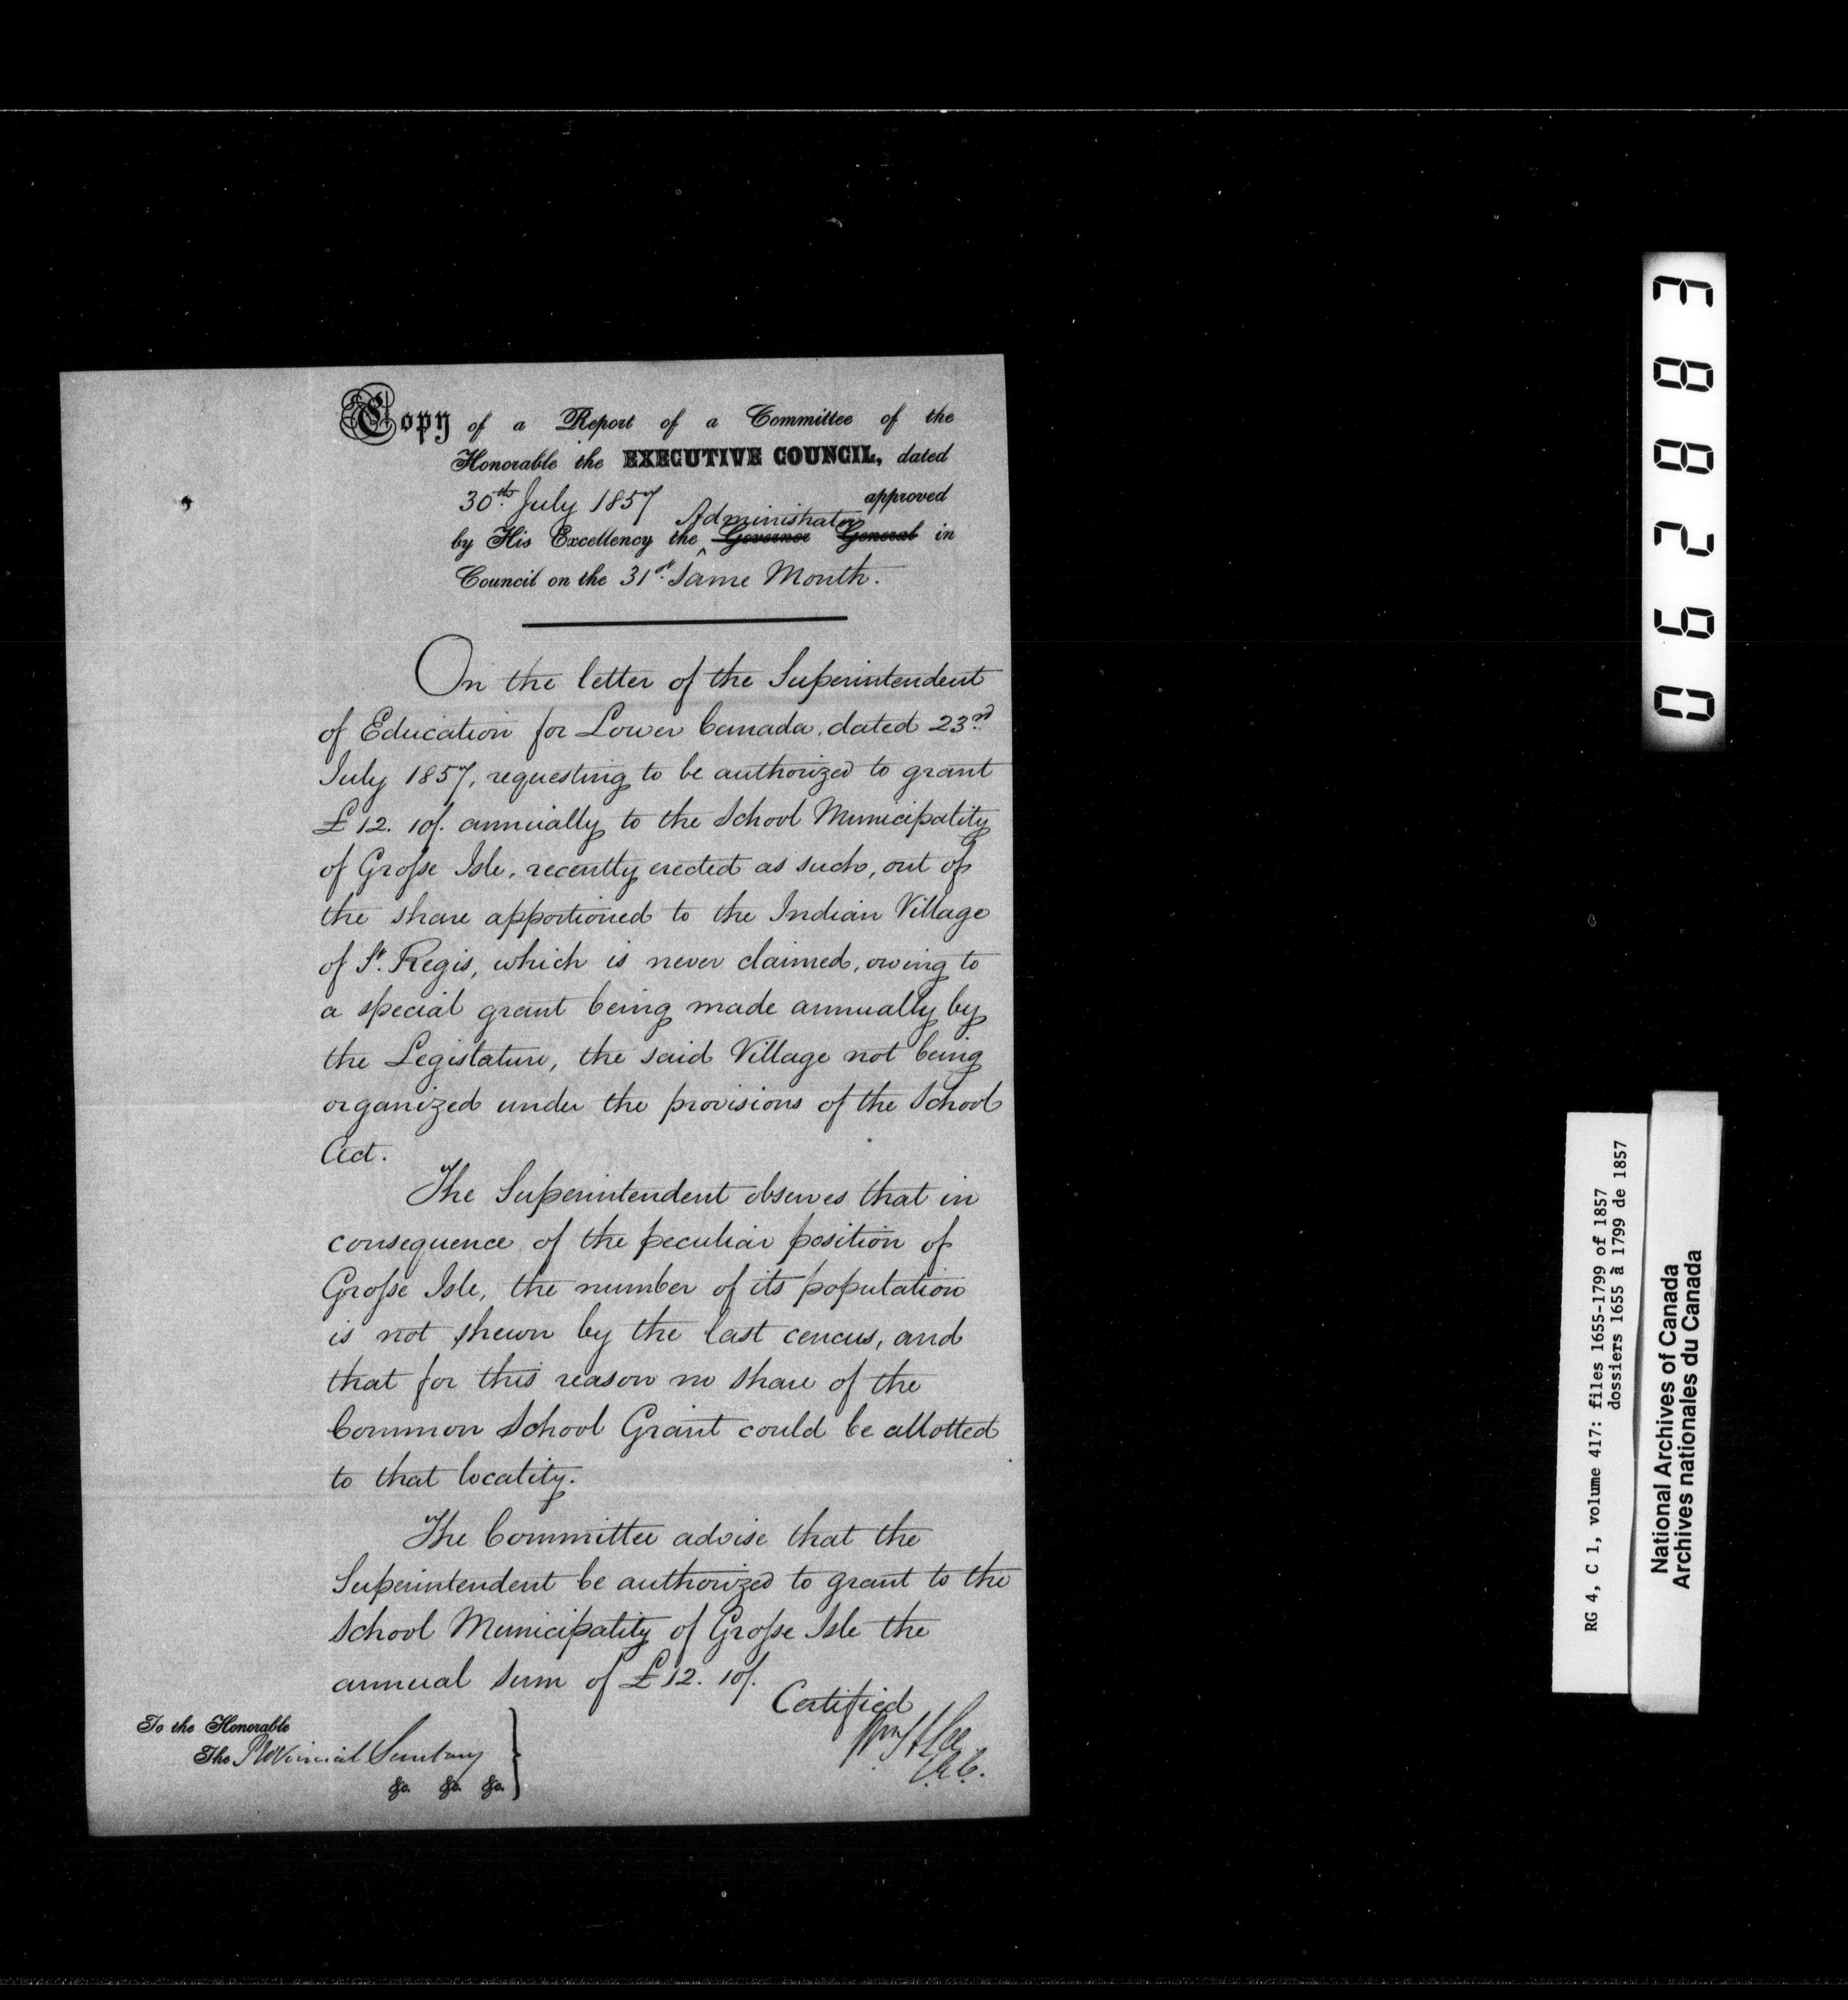 Copy of a Report of a Committee of the
Honorable the EXECUTIVE COUNCIL, dated
30th July 1857 approved
Administrator
by His Excellency the Governor General in
Council on the 31st Same Month.
On the letter of the Superintendent
of Education for Lower Canada, dated 23rd
July 1857, requesting to be authorized to grant
£12. 10/. annually to the School Municipality
of Grosse Isle, recently erected as such, out of
the share apportioned to the Indian Village
of St. Regis, which is never claimed, owing to
a special grant being made annually by
the Legislature, the said Village not being
organized under the provisions of the School
Act.
The Superintendent observes that in
consequence of the peculiar position of
Grosse Isle, the number of its population
is not shewn by the last cencus, and
that for this reason no share of the
Common School Grant could be allotted
to that locality.
The Committee advise that the
Superintendent be authorized to grant to the
School Municipality of Grosse Isle the
annual sum of £12. 10/.
Certified
Wm H Lee
C.E.C.
To the Honorable
The Provincial Secretary
&c. &c. &c.
062883
RG 4, C 1, volume 417: files 1655-1799 of 1857
dossiers 1655 à 1799 de 1857
National Archives of Canada
Archives nationales du Canada